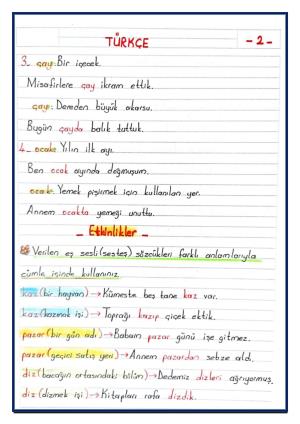 TÜRKÇE
- 2 -
3_ çay: Bir içecek.
Misafirlere çay ikram ettik.
çay: Dereden büyük akarsu.
Bugün çayda balık tuttuk.
4_ ocak: Yılın ilk ayı.
Ben ocak ayında doğmuşum.
ocak: Yemek pişirmek için kullanılan yer.
Annem ocakta yemeği unuttu.
_ Etkinlikler _
Verilen eş sesli (sesteş) sözcükleri farklı anlamlarıyla
cümle içinde kullanınız.
kaz (bir hayvan) → Kümeste beş tane kaz var.
kaz (kazmak işi) → Toprağı kazıp çiçek ektik.
pazar (bir gün adı) → Babam pazar günü işe gitmez.
pazar (geçici satış yeri) → Annem pazardan sebze aldı.
diz (bacağın ortasındaki bölüm) → Dedemiz dizleri ağrıyormuş.
diz (dizmek işi) → Kitapları rafa dizdik.